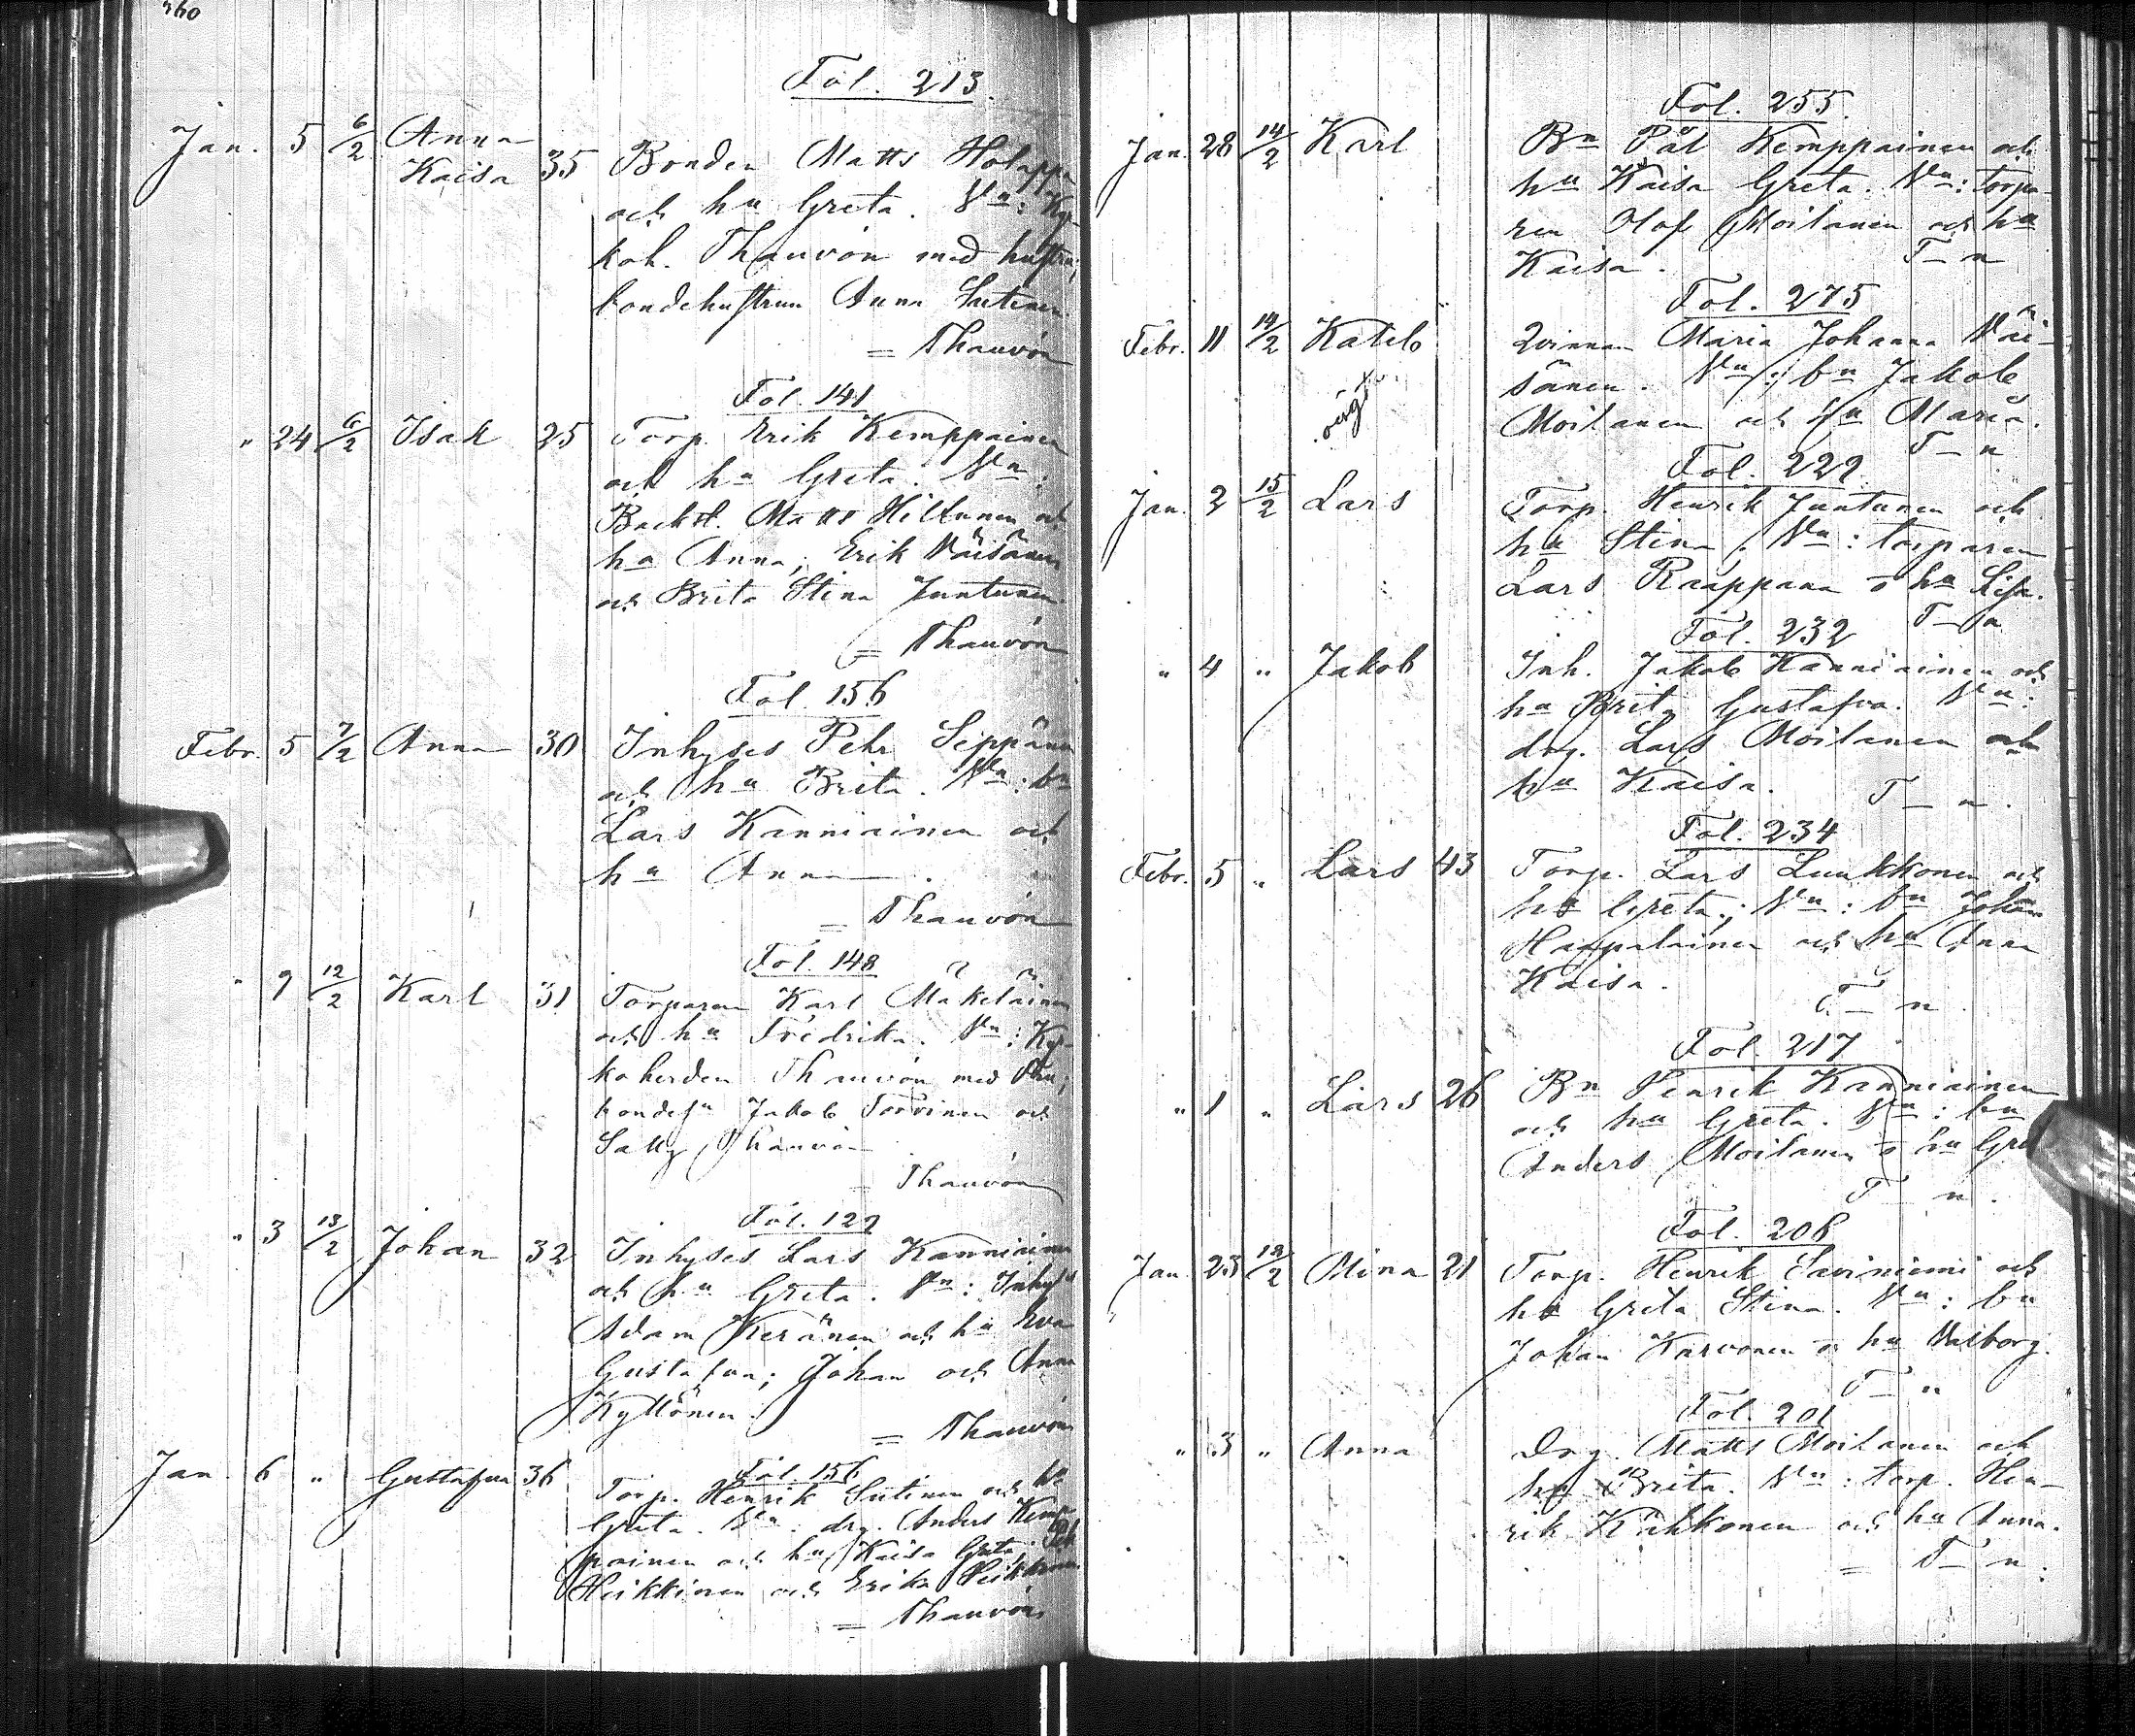 Fol. 213.
Jan. 5 6/2 Anna
Kaisa 35 Bonden Matts Holappa
och hu Greta. Vn: Kyr-
koh. Thauvón med hustru,
bondehustrun Anna
= Thauvón
Fol. 141
" 24 6/2 Isak 25 Torp. Erik Kemppainen
och hu Greta. Vn:
Backst. Matts Hiltunen och
hu Anna; Erik Väisänen
och Brita Stina Juntunen
= Thauvón
Fol. 156
Febr. 5 7/2 Anna 30 Inhyses Pehr Seppänen
och hu Brita. Vn: bn
Lars Kanniainen och
hu Anna.
= Thauvón
Fol. 148
" 9 12/2 Karl 31 Torparen Karl Mäkeläinen
och hu Fredrika. Vn: Kyr-
koherden Thauvón med
Jakob Torvinen och
Thauvón
Thauvón
Fol. 129
" 3 13/2 Johan 32 Inhyses Lars Kanniainen
och hu Greta. Vn: Inhys
Adam Keränen och hu Eva
Gustafva; Johan och Anna
Kyllönen.
= Thauvón
Fol. 156
Jan. 6 " Gustafva 36 Torp. Henrik Sutinen och hu
Greta. Vn: drg. Anders Kemp-
painen och hu Kaisa Greta,
Heikkinen och Erika Heikkinen
= Thauvón
Fol. 255.
Jan. 28 14/2 Karl Bn Pål Kemppainen och
hu Kaisa Greta. Vn: torpa-
ren Olof Moilanen och hu
Kaisa. T–n
Fol. 275
Febr. 11 14/2 Kaleb Qvinnan Maria Johanna Väi-
sänen. Vn: bn Jakob
Moilanen och hu Maria.
T–n
Fol. 229
Jan. 2 15/2 Lars Torp. Henrik Juntunen och
hu Stina. Vn: torparen
Lars Raappana o hu Lisa.
T–n
Fol. 232
" 4 " Jakob Inh. Jakob Kanniainen och
hu Brita Gustafva. Vn:
drg. Lars Moilanen och
hu Kaisa. T–n.
Fol. 234
Febr. 5 " Lars 43 Torp. Lars Luukkonen och
hu Greta; Vn: bn Johan
Haapalainen och hu Anna
Kaisa.
T–n.
Fol. 217
" 1 " Lars 26 Bn Henrik Kanniainen
och hu Greta. Vn: bn
Anders Moilanen o hu
T–n.
Fol. 208
Jan. 23 18/2 Mina 21 Torp. Henrik Saviniemi och
hu Greta Stina. Vn: bn
Johan Karvonen o hu Valborg.
T–n
Fol. 201
" 3 " Anna Drg. Matts Moilanen och
hu Brita. Vn: torp. Hen-
rik Kähkönen och hu Anna.
= T–n.